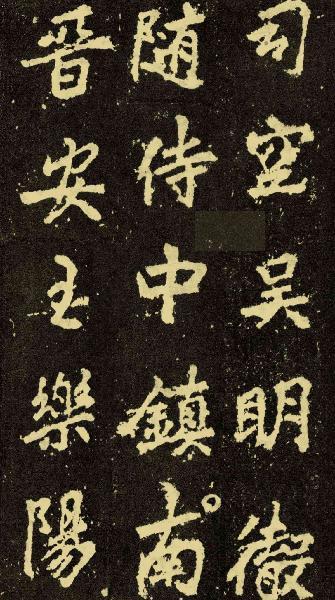 司空吴明徹
随侍中鎮南
晋安王樂陽